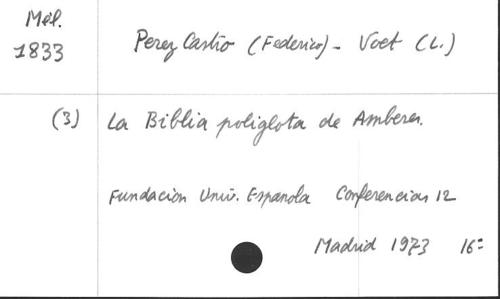 Mél.
1833
Perez Castro (Federico) - Voet (L.)
(3) La Biblia poliglota de Amberes.
Fundacion Univ. Espanola Conferencias 12
Madrid 1973 16°